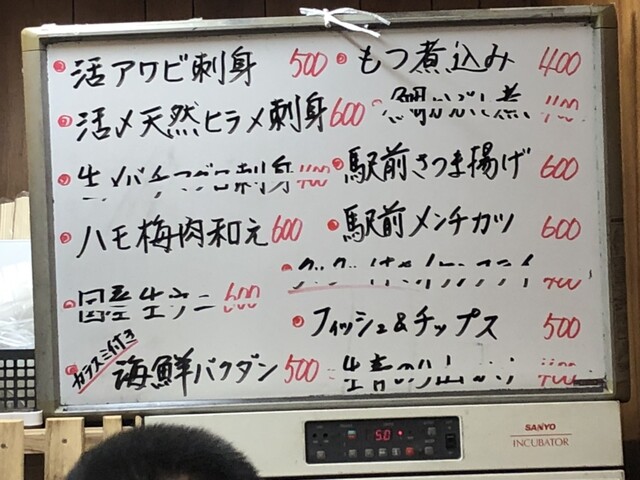 活アワビ刺身 500
活〆天然ヒラメ刺身 600
生メバチマグロ刺身 400
ハモ梅肉和え 600
国産生ウニ 600
カラスミ付き
海鮮バクダン 500
もつ煮込み 400
煮 400
駅前さつま揚げ 600
駅前メンチカツ 600
400
フィッシュ&チップス 500
400
50
SANYO
INCUBATOR